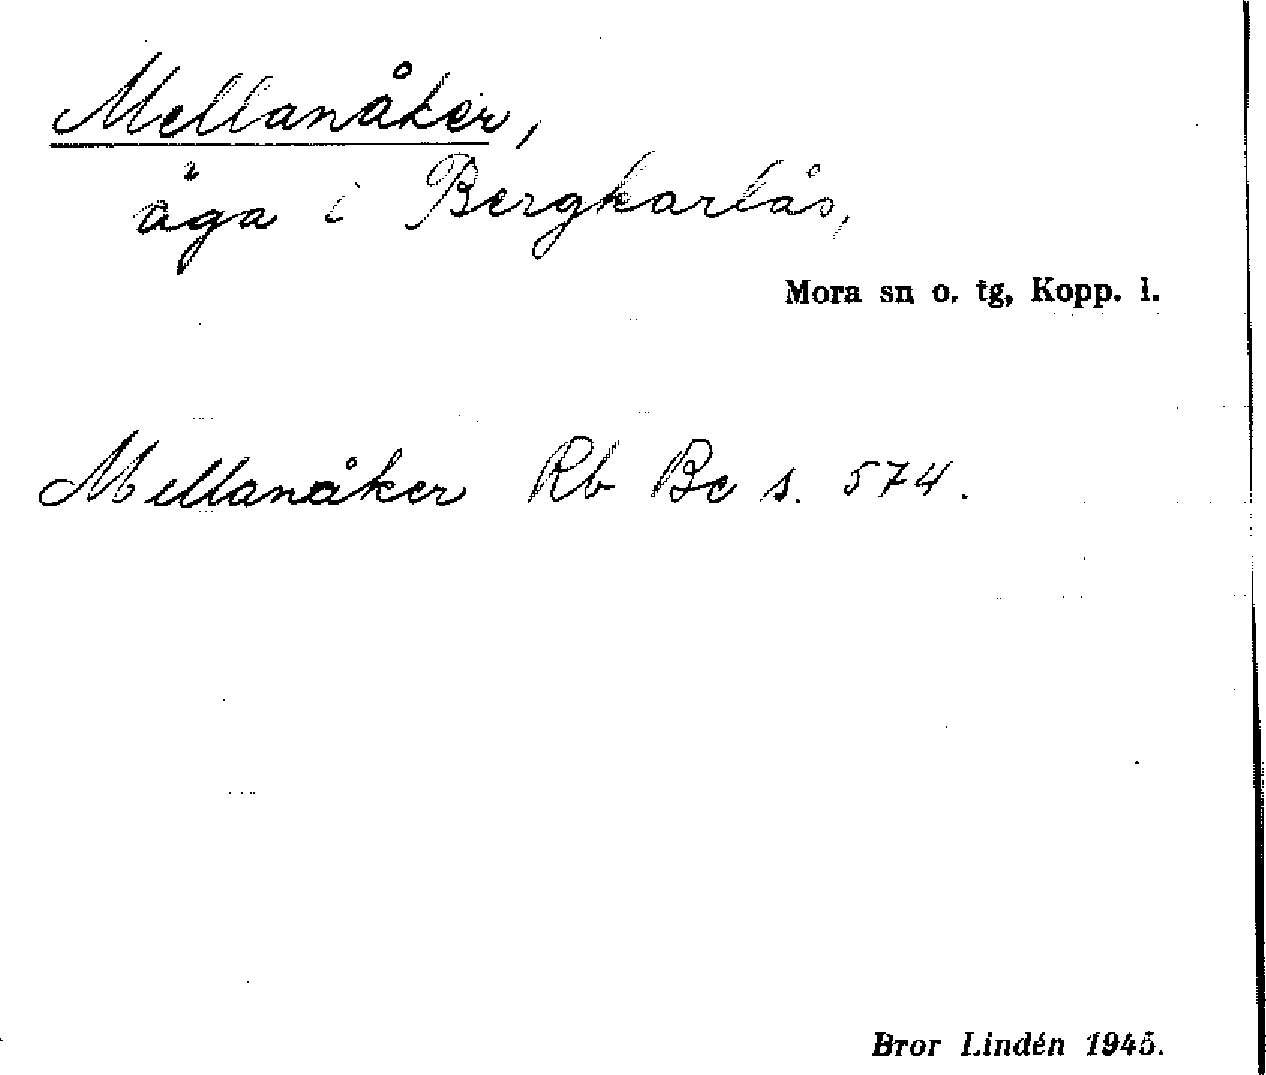 Mellanåker,
åga i Bergkarlås,
Mora sn o. tg, Kopp. l.
Mellanåker Rb Bc s. 574.
Bror Lindén 1945.